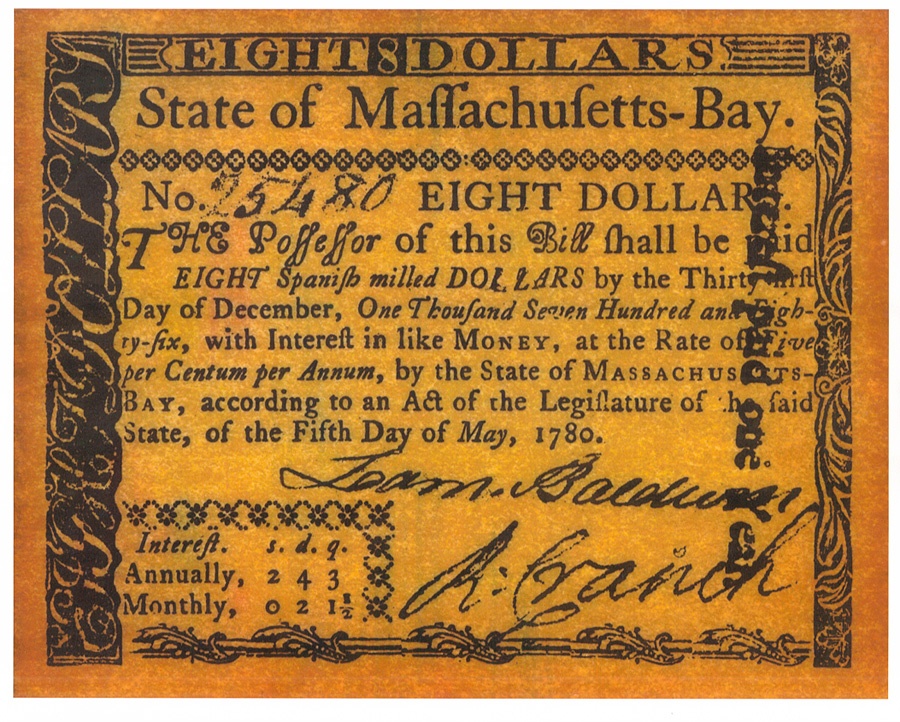 EIGHT 8 DOLLARS.
State of Maſſachuſetts-Bay.
No. 25480 EIGHT DOLLARS.
THE Poſſeſſor of this Bill ſhall be paid
EIGHT Spaniſh milled DOLLARS by the Thirty-firſt
Day of December, One Thouſand Seven Hundred and Eigh-
ty-ſix, with Intereſt in like MONEY, at the Rate of Five
per Centum per Annum, by the State of MASSACHUSETTS-
BAY, according to an Act of the Legiſlature of the ſaid
State, of the Fifth Day of May, 1780.
Loam. Baldwin
R: Cranch
Intereſt. s. d. q.
Annually, 2 4 3
Monthly, 0 2 1½